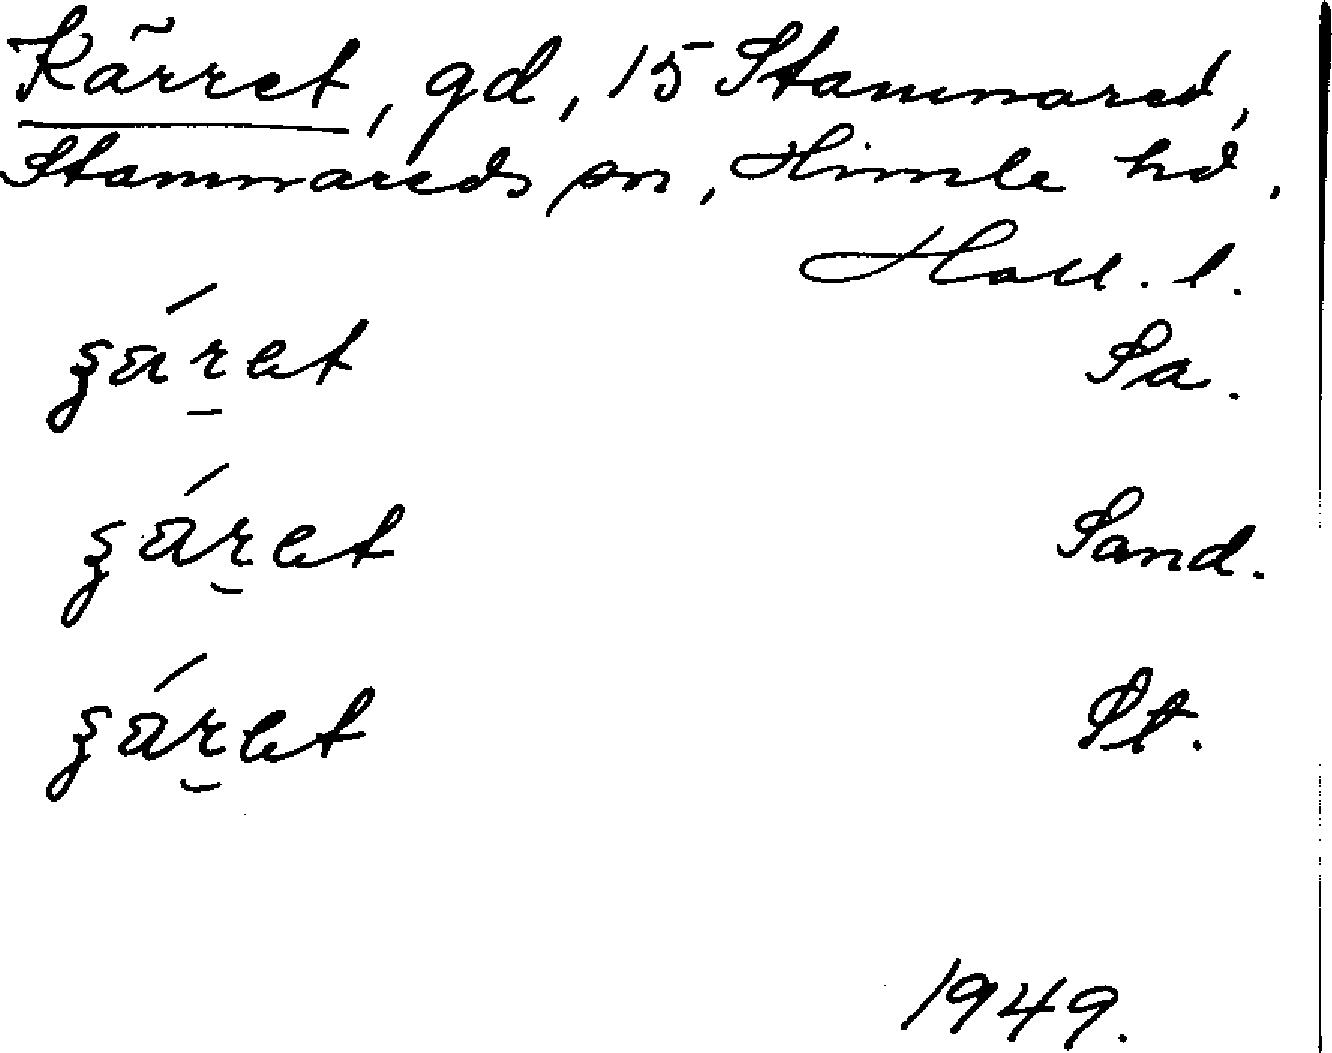 Kärret, gd, 15 Stamnared,
Stamnareds sn, Himle hd.
Hall. l.
Sa.
Sand.
St.
1949.